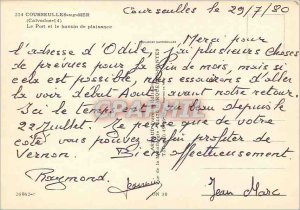 224 COURSEULLES-sur-MER
(Calvados)
Le Port et le bassin de plaisance
Courseulles le 29/7/80
Merci pour
l'adresse d'Odile, j'ai plusieurs choses
de prévues pour la fin de mois, mais si
cela est possible nous essaierons d'aller
la voir début Août avant notre retour.
Ici le temps est bon depuis le
22 Juillet. Je pense que de votre
coté vous pouvez enfin profiter de
Vernon. Bien affectueusement
Raymond.
Jean Marc